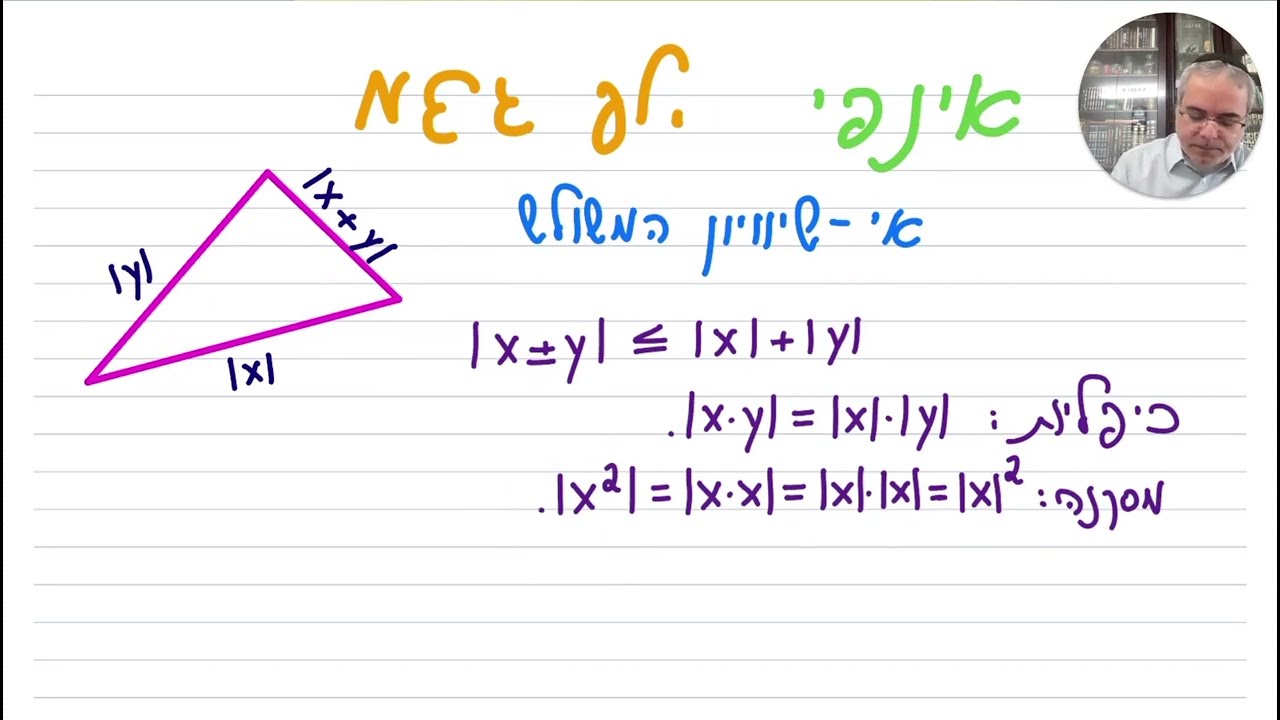 אינפי
אי-שיוויון המשולש
|x+y|
|y|
|x|
|x±y| ≤ |x|+|y|
כיפליות: |x·y| = |x|·|y|.
מסקנה: |x²| = |x·x| = |x|·|x| = |x|².